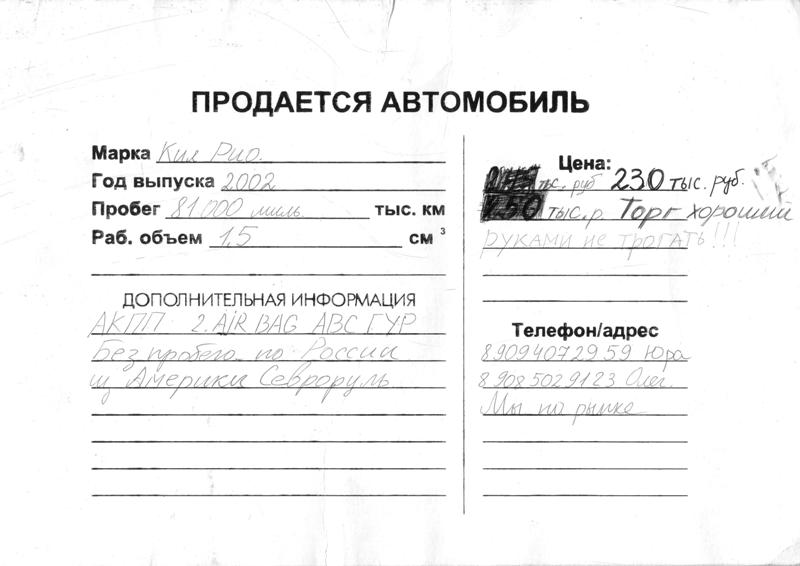 ПРОДАЕТСЯ АВТОМОБИЛЬ
Марка Киа Рио.
Год выпуска 2002
Пробег 81000 миль тыс. км
Раб. объем 1,5 см³
ДОПОЛНИТЕЛЬНАЯ ИНФОРМАЦИЯ
АКПП 2. AiR BAG ABC ГУР
Без пробега по России
из Америки Севроруль
Цена:
тыс. руб 230 тыс. руб.
50 тыс. р. Торг хороший
РУКАМИ НЕ ТРОГАТЬ!!!
Телефон/адрес
89094072959 Юра
89085029123 Олег.
Мы на рынке